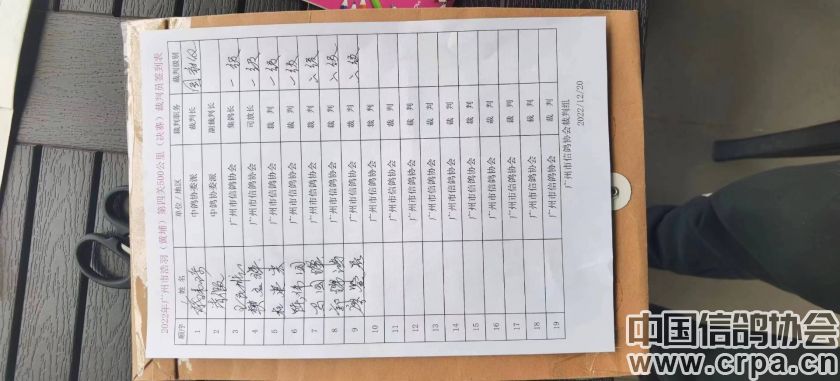 2022年广州市浩羽（黄埔）第四关500公里（决赛）裁判员签到表
顺序 姓名 单位/地区 裁判职务 裁判级别
1 中鸽协委派 裁判长 国家级
2 中鸽协委派 副裁判长
3 广州市信鸽协会 集鸽长 一级
4 广州市信鸽协会 司放长 一级
5 广州市信鸽协会 裁判 一级
6 广州市信鸽协会 裁判 一级
7 广州市信鸽协会 裁判 二级
8 广州市信鸽协会 裁判 二级
9 广州市信鸽协会 裁判 二级
10 广州市信鸽协会 裁判
11 广州市信鸽协会 裁判
12 广州市信鸽协会 裁判
13 广州市信鸽协会 裁判
14 广州市信鸽协会 裁判
15 广州市信鸽协会 裁判
16 广州市信鸽协会 裁判
17 广州市信鸽协会 裁判
18 广州市信鸽协会 裁判
19 广州市信鸽协会 裁判
广州市信鸽协会裁判组
2022/12/20
中国信鸽协会
www.crpa.cn